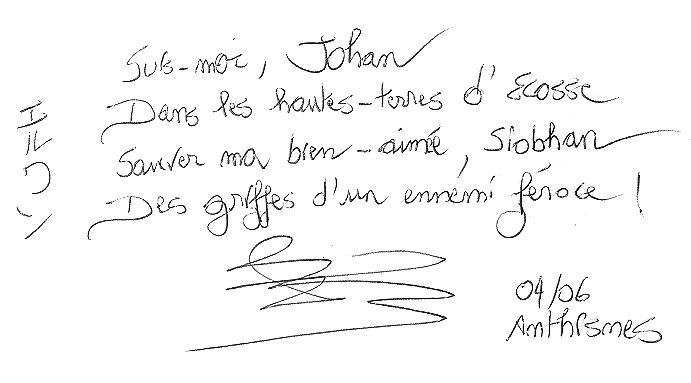 Suis-moi, Johan
Dans les hautes-terres d'Écosse
Sauver ma bien-aimée, Siobhan
Des griffes d'un ennemi féroce !
04/06
Anthismes